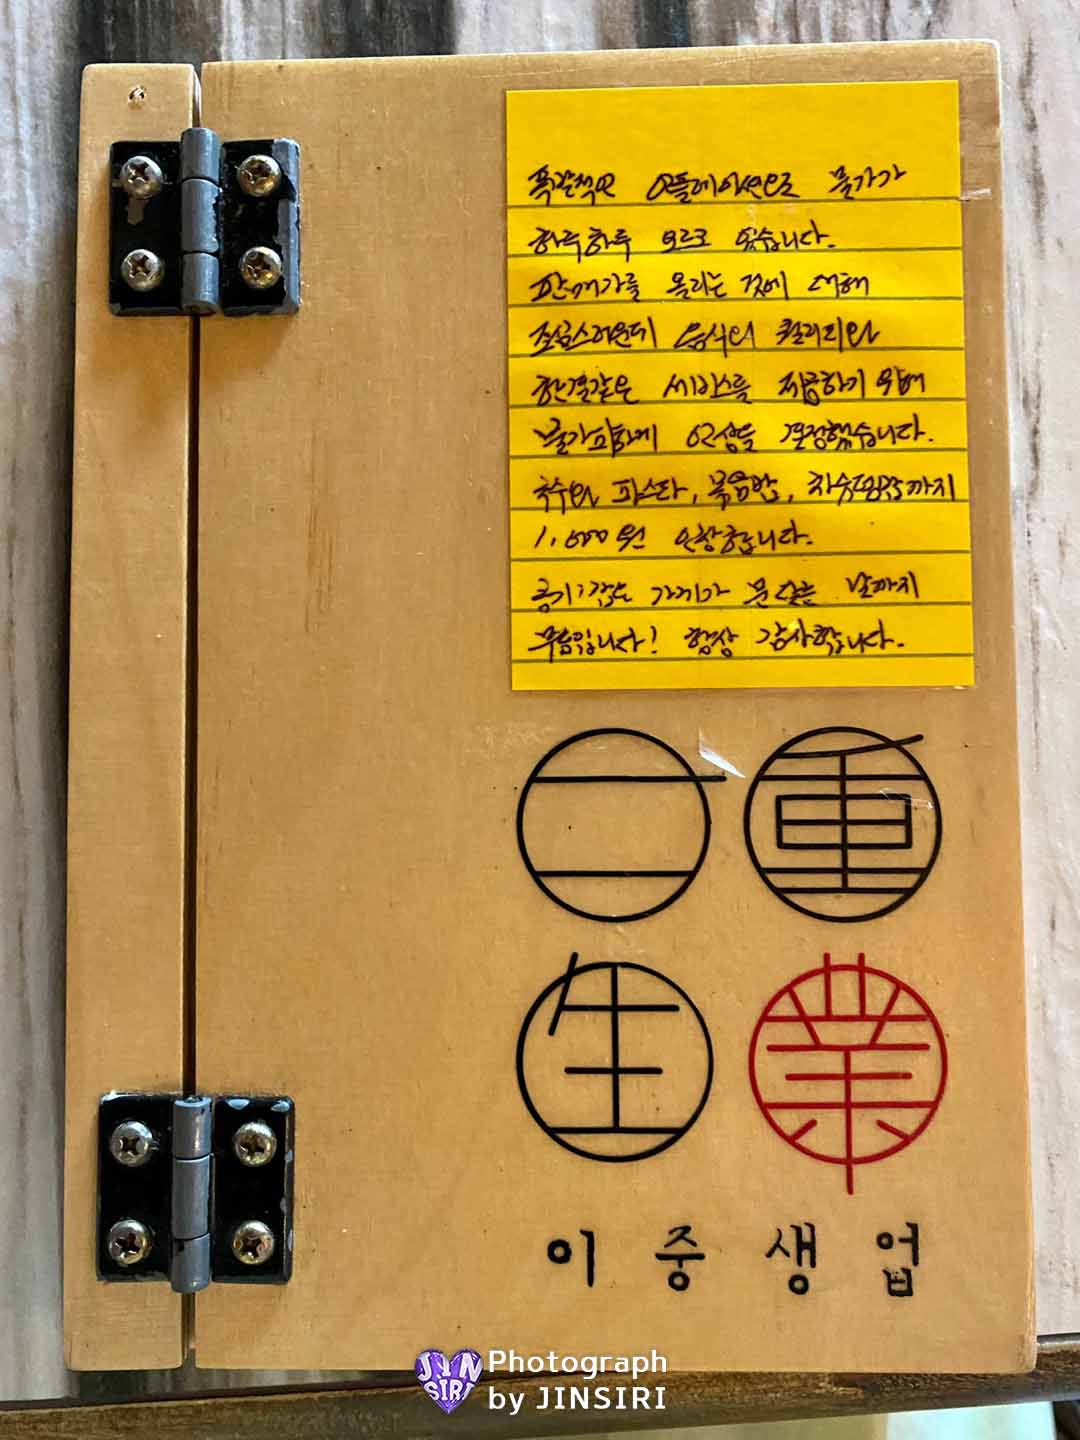 폭발적인 인플레이션으로 물가가
하루하루 오르고 있습니다.
판매가를 올리는 것에 대해
조심스러운데 음식의 퀄리티와
한결같은 서비스를 제공하기 위해
불가피하게 인상을 결정했습니다.
국수와 파스타, 볶음밥, 치수덮밥까지
1,000원 인상합니다.
공기밥은 가게가 문 닫는 날까지
무료입니다! 항상 감사합니다.
二重
生業
이중생업
JIN SIRI Photograph
by JINSIRI